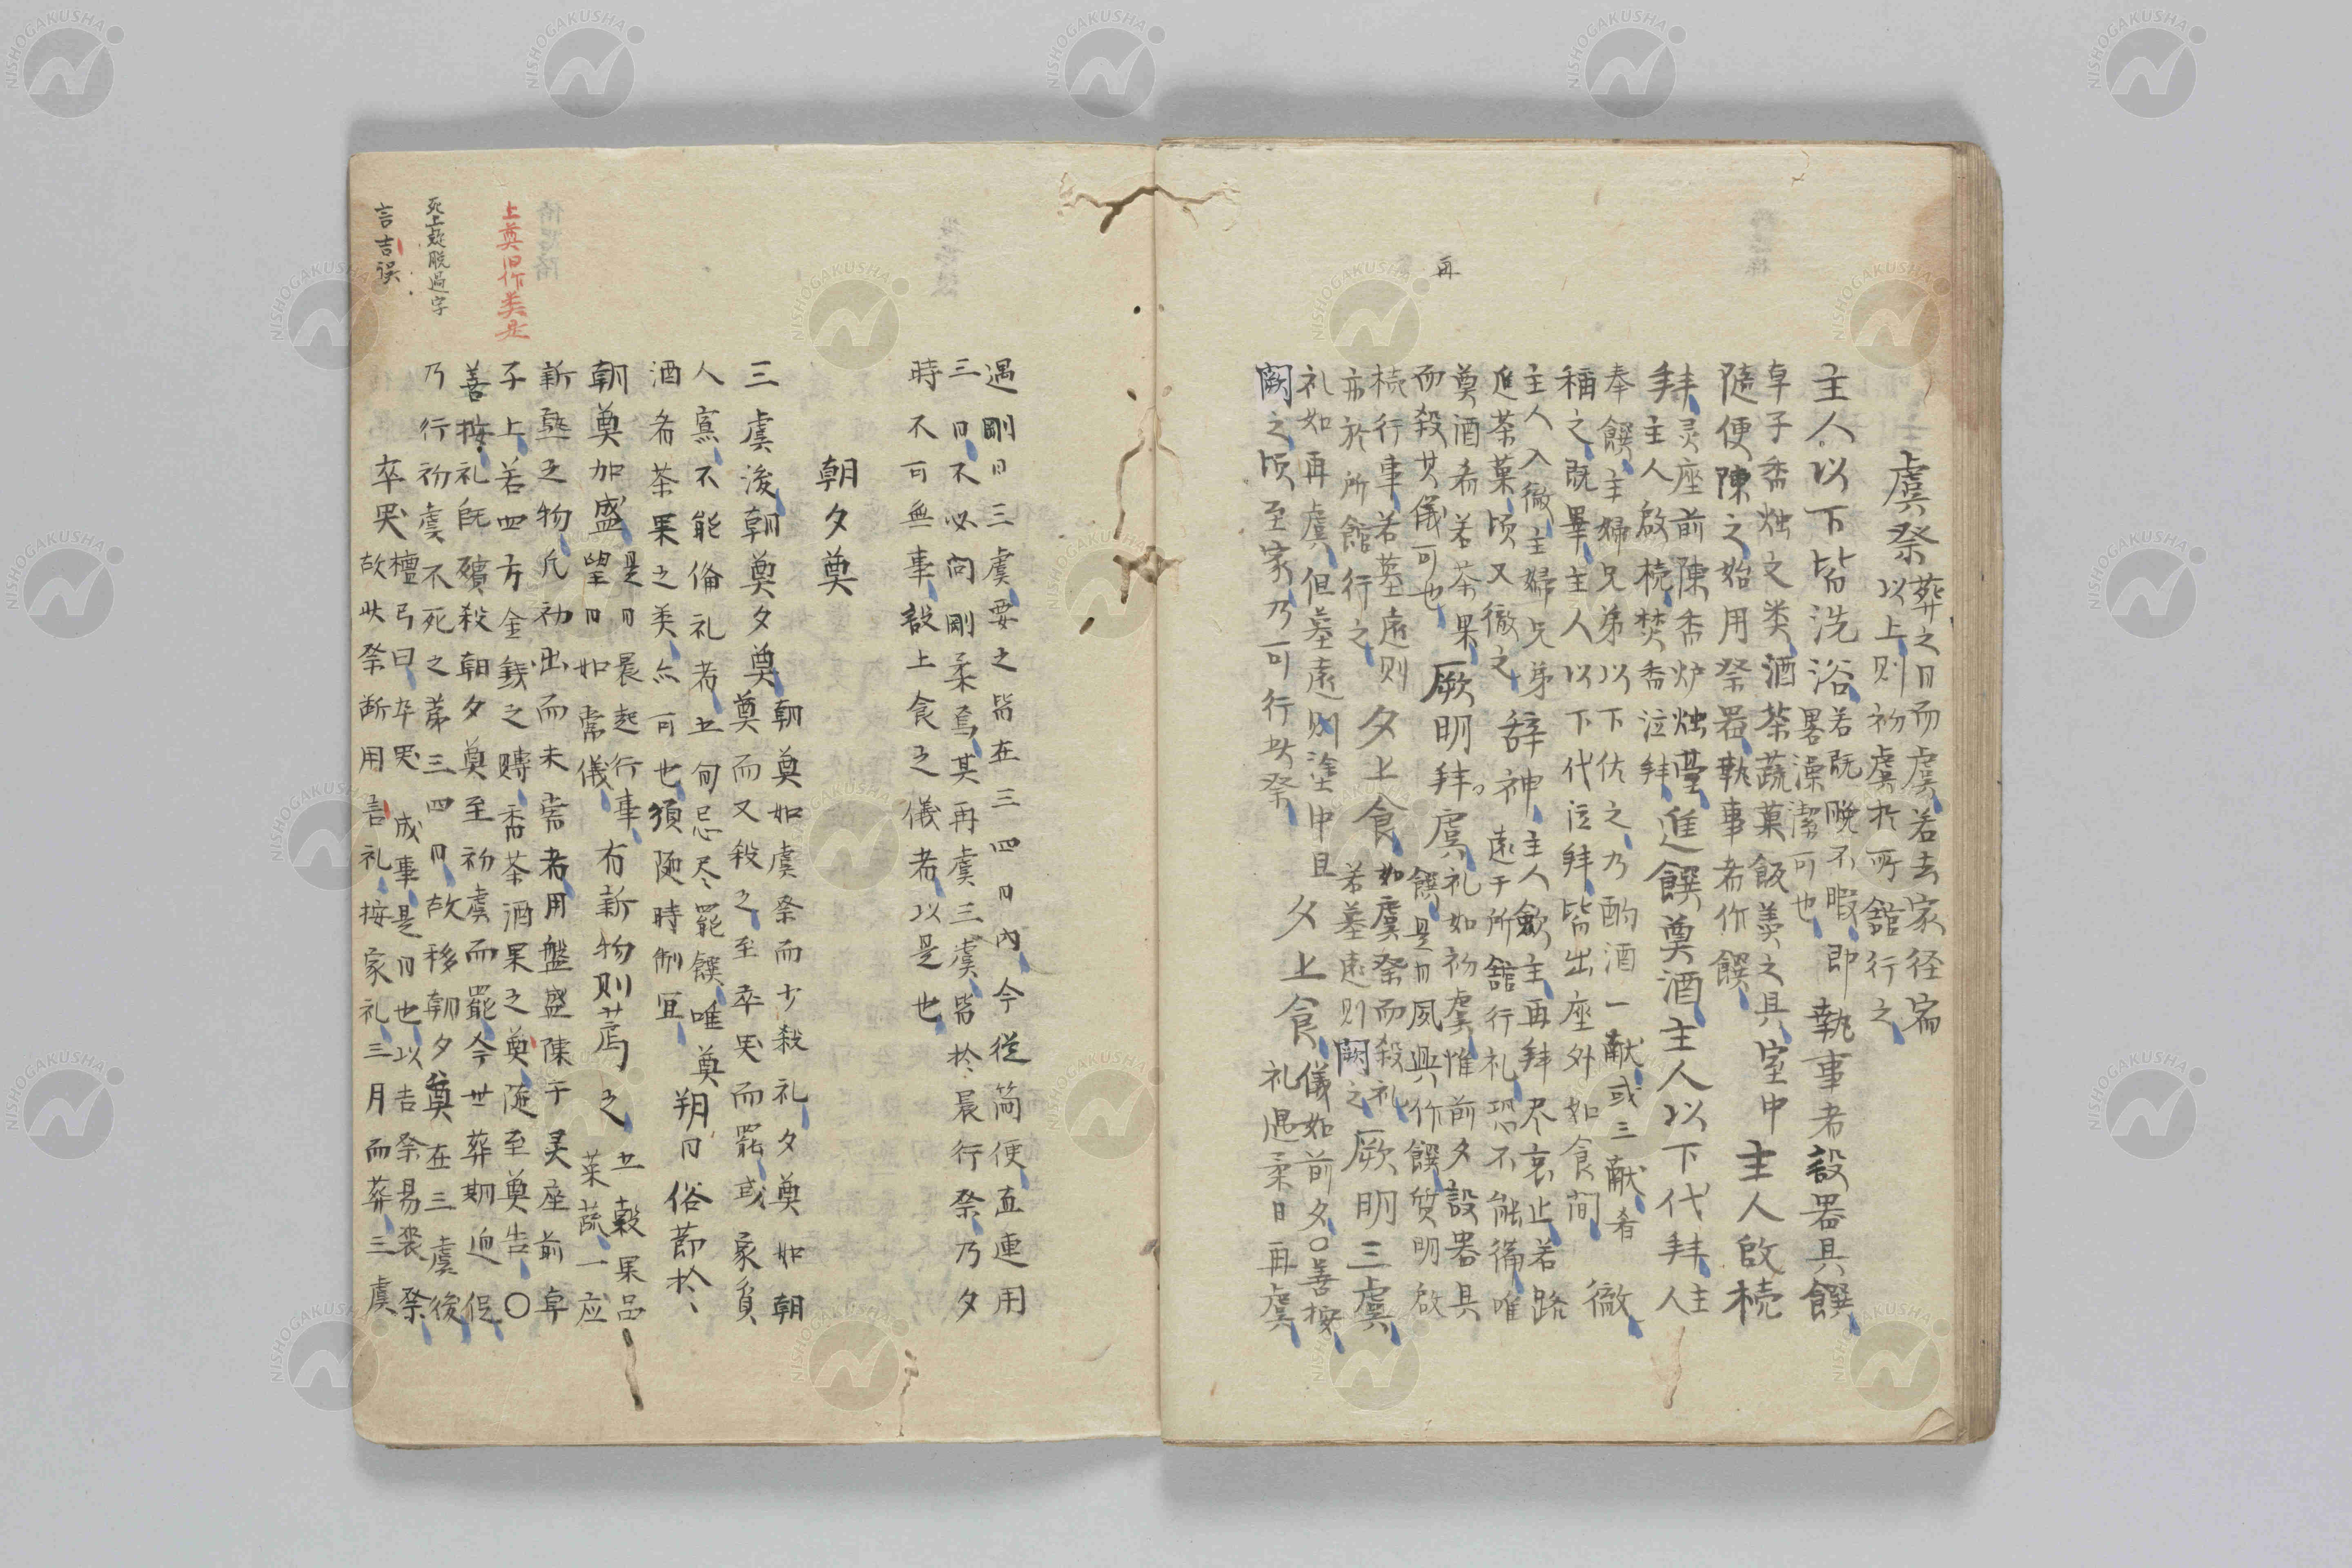 虞祭
葬之日而虞若去家径宿
以上則初虞於所舘行之
主人以下皆洗浴
若既晚不暇
畧澡潔可也
即執事者設器具饌
卓子香炷之类酒茶蔬菓飯羹之具室中主人啟櫝
随便陳之始用祭器執事者作饌
拜
灵座前陳香炉炷臺
主人啟櫝焚香泣拜
進饌奠酒主人以下代拜
主人
奉饌主婦兄弟以下佐之乃酌酒一献或三献肴
稱之既畢主人以下代泣拜皆出座外如食間
徹
主人入徹主婦兄弟
進茶菓頃又徹之
辞神
主人歛主再拜尽哀止若路
遠于所舘行礼恐不能備唯
奠酒肴若茶果
而殺其儀可也
厥明拜虞
礼如初虞惟前夕設器具
饌是日夙興作饌質明啟
櫝行事若墓遠則
亦於所館行之
夕上食
如虞祭而殺礼
若墓遠則闕之
厥明三虞
礼如再虞但墓遠則塗中且
闕之須至家乃可行此祭
夕上食
儀如前夕〇善按
礼遇柔日再虞
再
遇剛日三虞要之皆在三四日內今從简便直連用
三日不必问剛柔焉其再虞三虞皆於晨行祭乃夕
時不可無事設上食之儀者以是也
朝夕奠
三虞後朝奠夕奠
朝奠如虞祭而少殺礼夕奠如朝
奠而又殺之至卒哭而罷或家貧
人寡不能備礼者五旬忌尽罷饌唯奠
酒肴茶果之类亦可也須随時制宜
朔日俗節於
朝奠加盛
是日晨起行事
望日如常儀
有新物则荐之
五穀果品
菜蔬一应
新熟之物凡初出而未嘗者用盤盛陳于灵座前卓
子上若四方金錢之賻香茶酒果之奠随至奠告〇
善按礼既殯殺朝夕奠至初虞而罷今世葬期迫促
乃行初虞不死之第三四日故移朝夕奠在三虞後
卒哭
檀弓曰卒哭成事是日也以吉祭易喪祭
故此祭漸用言礼按家礼三月而葬三虞
上奠旧作类是
死上蓋脱過字
言吉误